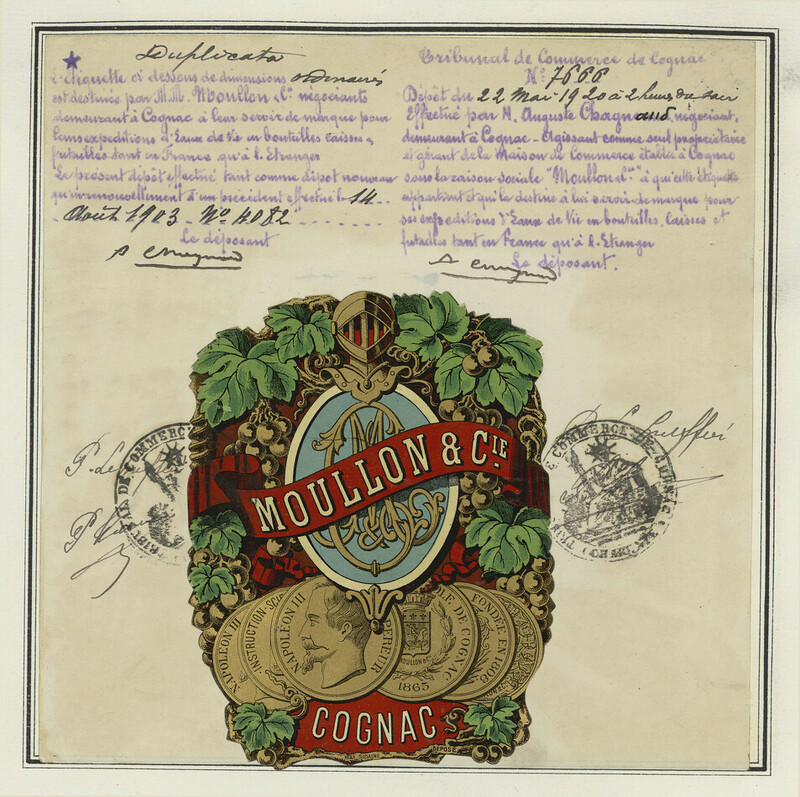 Duplicata
L'Etiquette ci dessous de dimensions ordinaires
est destinée par M.M. Moullon & Cie négociants
demeurant à Cognac à leur servir de marque pour
leurs expeditions d'Eaux de Vie en bouteilles caisses &
futailles tant en France qu'à l'Etranger
Le présent dépôt effectué tant comme dépôt nouveau
qu'en renouvellement d'un précédent effectué le 14
Août 1903 - No 4082
Le déposant
Tribunal de Commerce de Cognac
No 7666
Dépôt du 22 Mai 1920 à 2 heures du soir
Effectué par M. Auguste Chagnaud négociant,
demeurant à Cognac - Agissant comme seul propriétaire
et gérant de la Maison de Commerce établie à Cognac
sous la raison sociale "Moullon & Cie" à qui cette étiquette
appartient et qui la destine à lui servir de marque pour
ses expeditions d'Eaux de Vie en bouteilles, caisses et
futailles tant en France qu'à l'Etranger
Le déposant.
MOULLON & CIE
NAPOLEON III
INSTRUCTION-SCI
NAPOLEON III
EMPEREUR
DE COGNAC
MOULLON & C
1865
FONDÉE EN 1808
COGNAC
DÉPOSÉ
TRIBUNAL DE COMMERCE
TRIB
COMMERCE DE COGNAC